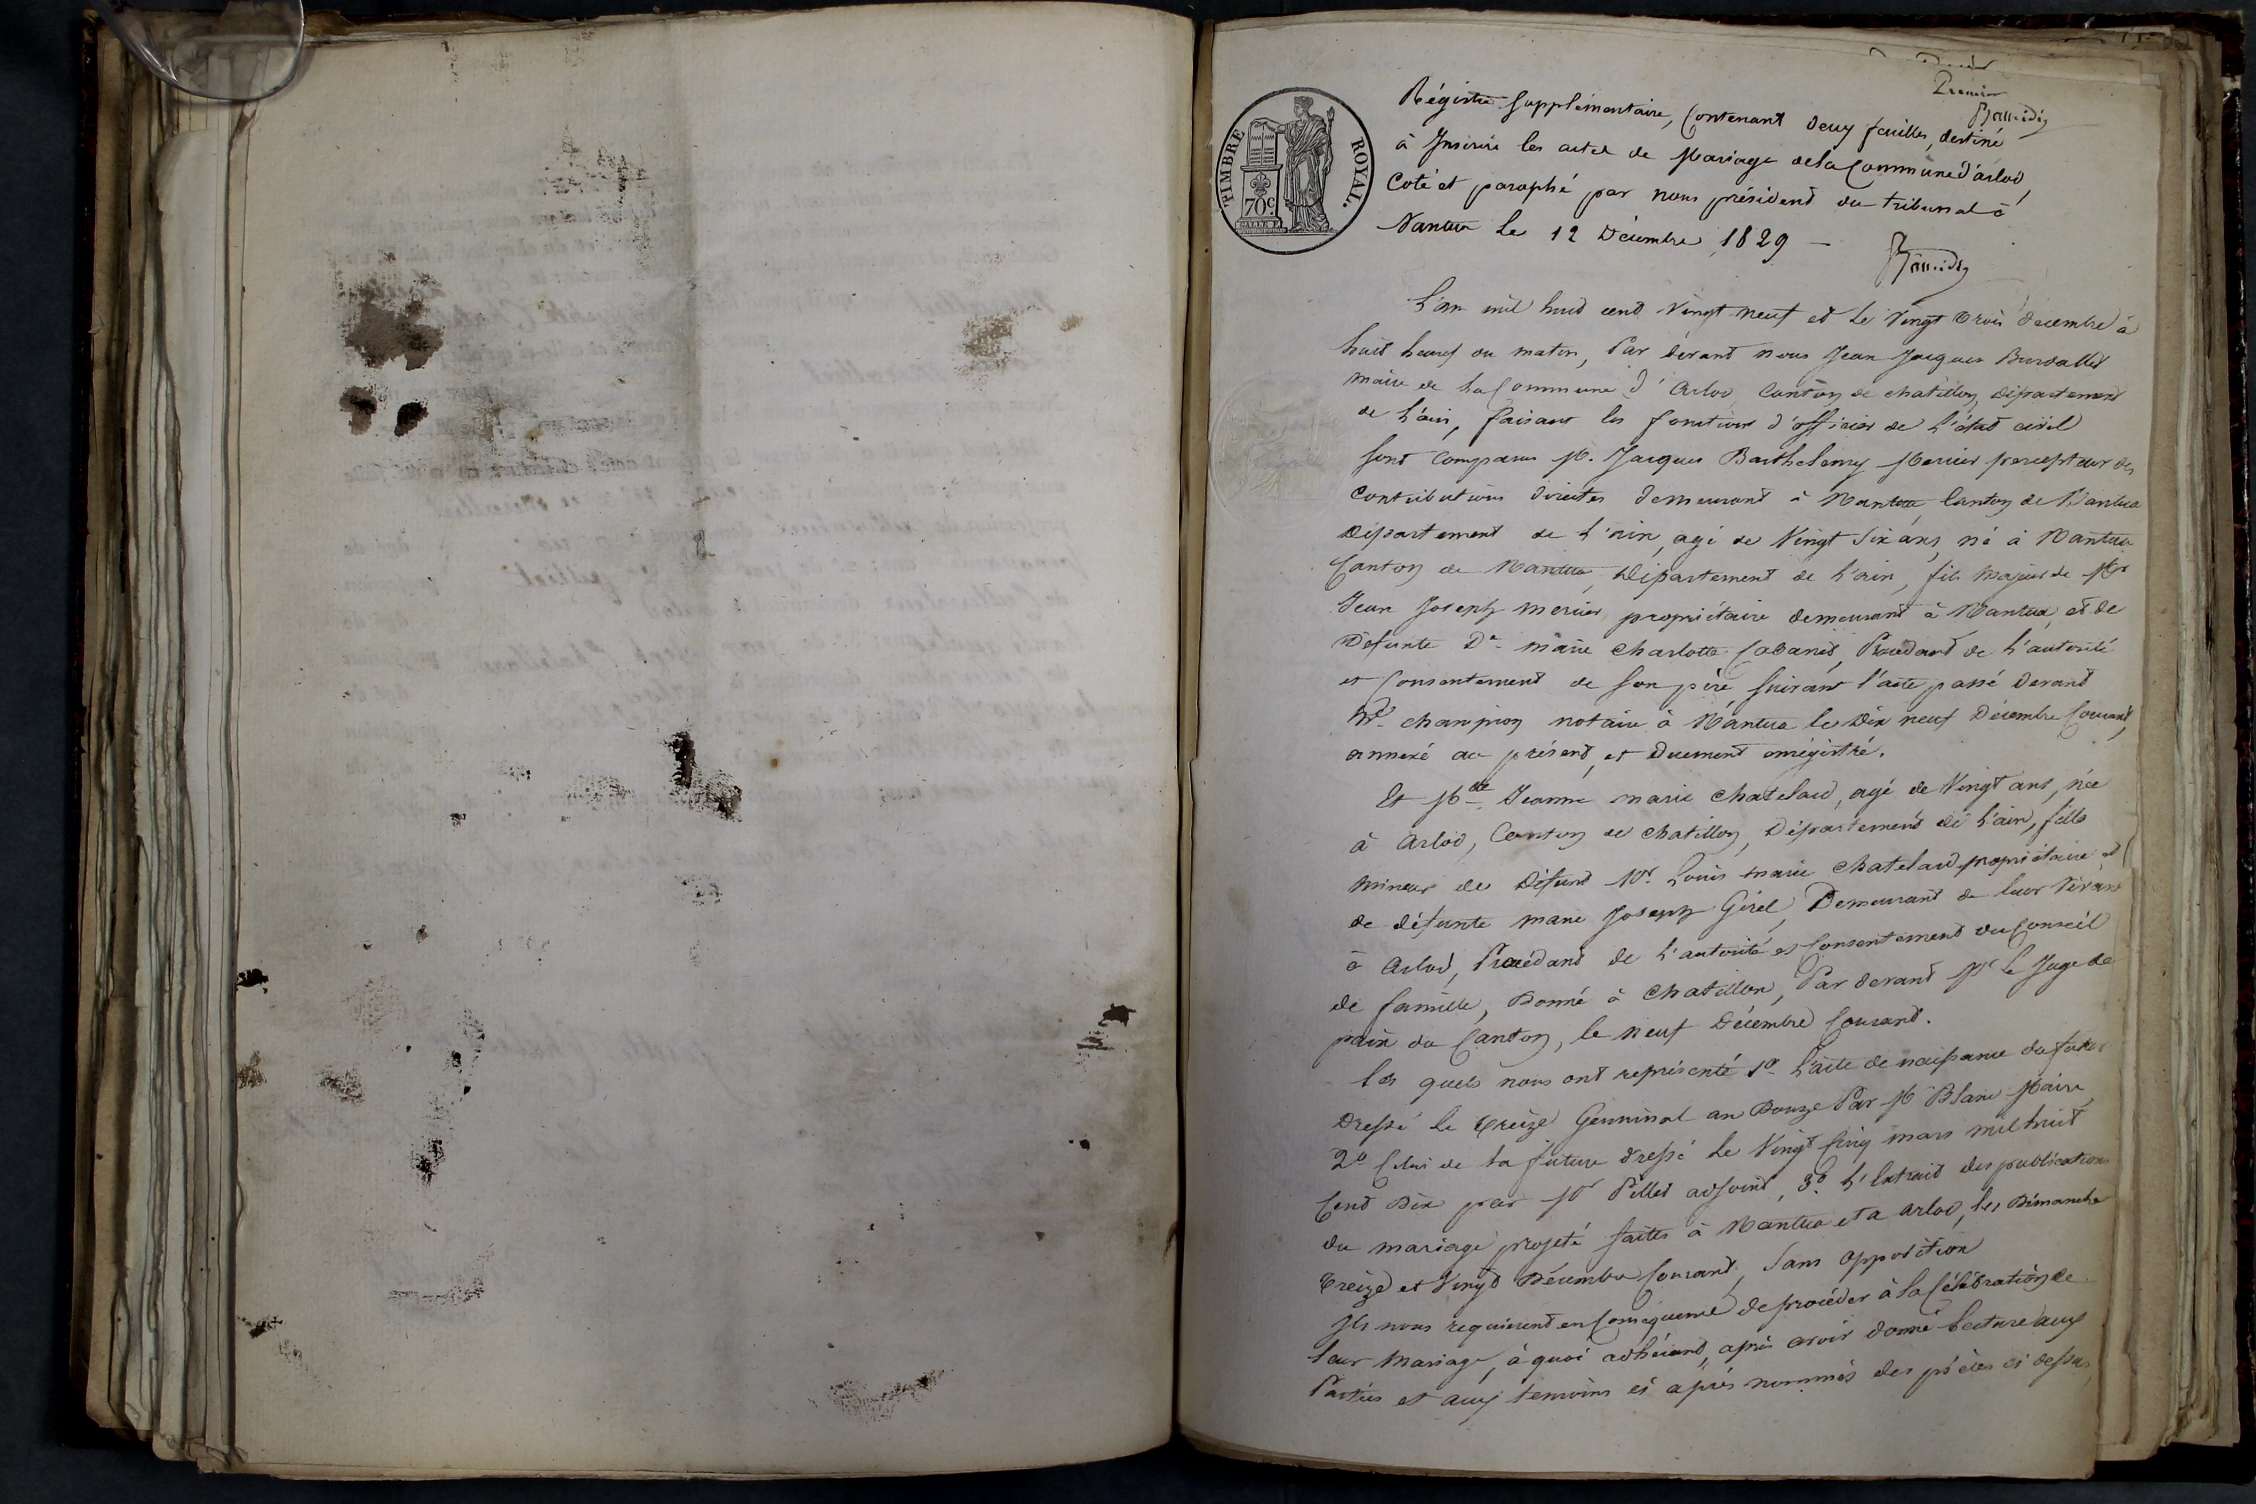 Premier
TIMBRE ROYAL.
70c
Régistre Supplémentaire, Contenant deux feuilles, destiné
à Inscrire les actes de Mariage de la Commune d'arlod,
Coté et paraphé par nous président du tribunal à
Nantua le 12 Décembre 1829 —
L'an mil huid cend vingt neuf et le vingt trois décembre à
huit heures du matin, Par devant nous Jean Jacques
maire de la Commune d'Arlod Canton de chatillon, département
de l'ain, faisant les fonctions d'officier de l'état civil
Sont Comparus M. Jacques Barthelemy Mercier percepteur des
Contributions directes demeurant à Nantua Canton de Nantua
Département de l'ain, agé de Vingt Six ans, né à Nantua
Canton de Nantua, Département de l'ain, fils majeur de Mr
Jean Joseph Mercier, propriétaire demeurant à Nantua, et de
Défunte De marie Charlotte Cabanet, Procédant de l'autorité
et Consentement de Son père Suivant l'acte passé devant
Me champion notaire à Nantua le Dix neuf Décembre Courant,
annexé au présend, et Duement enregistré.
Et Mlle Jeanne marie chatelard, agé de Vingt ans, née
à Arlod, Canton de chatillon, Département de l'ain, fille
mineur de Défunt Mr. Louis marie Chatelard propriétaire et
de défunte marie Joseph Girel, Demeurant de leur vivant
à Arlod, Procédand de l'autorité et Consentement du Conseil
de famille, Donné à Chatillon, Par devant Mr le Juge de
paix du Canton, le neuf Décembre Courant.
les quels nous ont représenté 1o. l'acte de naissance du futur
Dressé le treize Germinal an Douze Par M Blanc Maire,
2o Celui de la future dressé le Vingt Cinq mars mil huit
Cend Dix par Mr Pillet adjoint, 3o. L'Extrait des publications
du mariage projeté faites à Nantua et a Arlod, les Dimanche
treize et Vingt Décembre Courant, Sans opposition
Ils nous requierent en Conséquence de procéder à la Célébration de
leur Mariage, à quoi adhérand, après avoir donné lecture aux
Parties et aux temoins ci après nommés des pièces ci dessus,